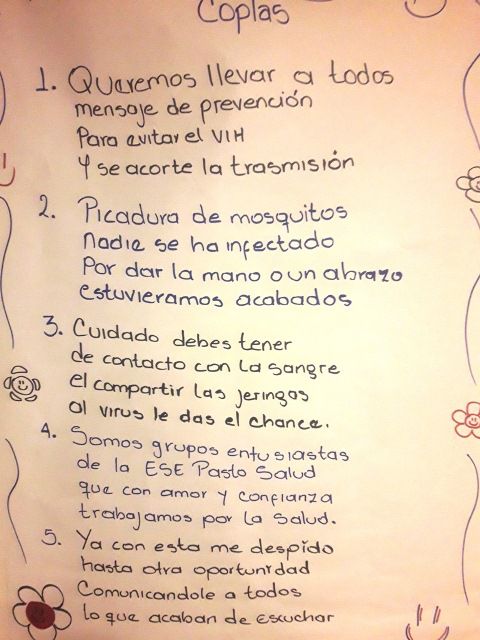 Coplas
1. Queremos llevar a todos
mensaje de prevención
Para evitar el VIH
Y se acorte la trasmisión
2. Picadura de mosquitos
nadie se ha infectado
Por dar la mano o un abrazo
estuvieramos acabados
3. Cuidado debes tener
de contacto con la sangre
el compartir las jeringas
al virus le das el chance.
4. Somos grupos entusiastas
de la ESE Pasto Salud
que con amor y confianza
trabajamos por la salud.
5. Ya con esta me despido
hasta otra oportunidad
Comunicandole a todos
lo que acaban de escuchar